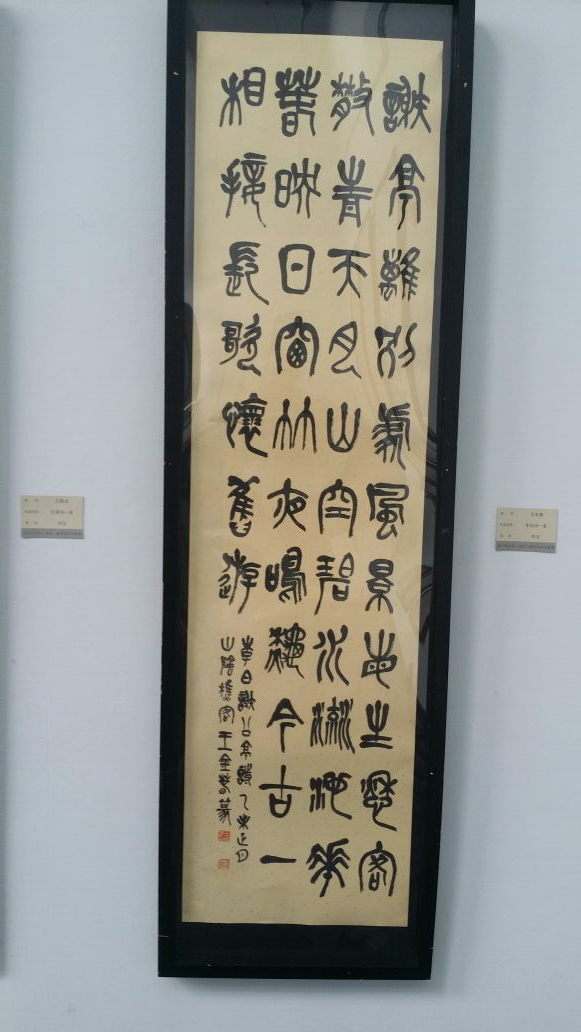 謝亭離別處風景每生愁客
散青天月山空碧水流池花
春映日窗竹夜鳴秋今古一
相接長歌懷舊遊
李白謝公亭詩乙未正月
山陰樵客王金春篆